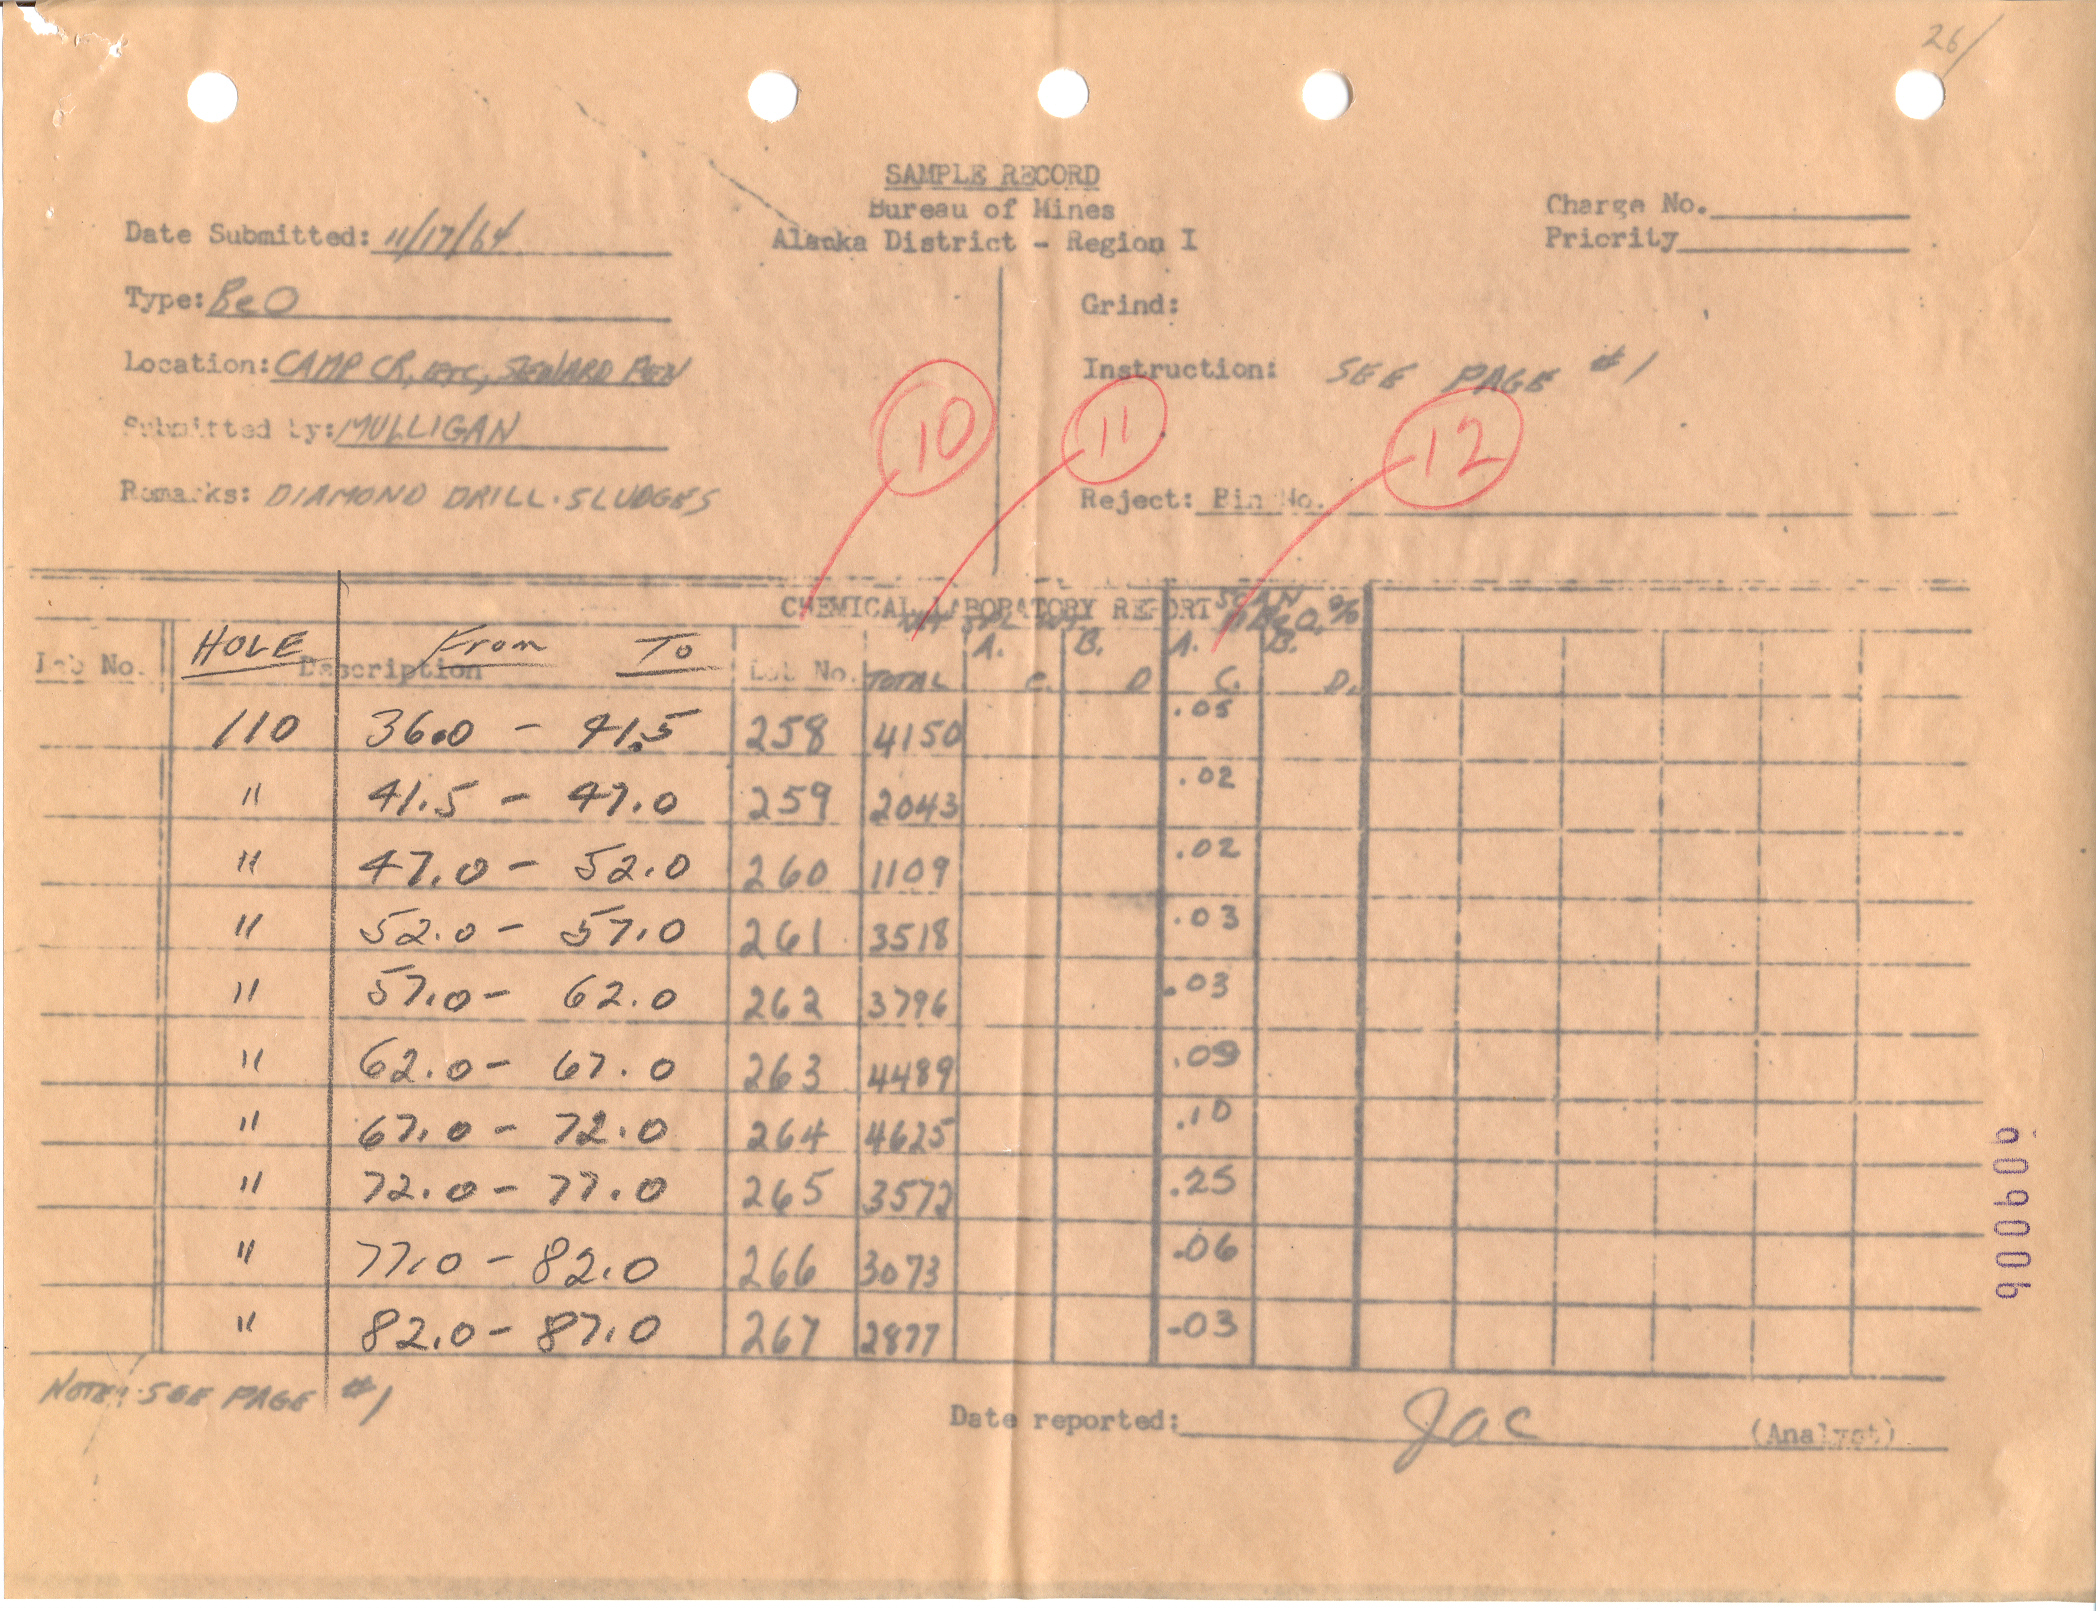 26/
SAMPLE RECORD
Bureau of Mines
Alaska District - Region I
Charge No.
Priority
Date Submitted: 11/17/64
Type: BeO
Location: CAMP CR, ETC, SEWARD PEN
Submitted by: MULLIGAN
Remarks: DIAMOND DRILL SLUDGES
Grind:
Instruction: SEE PAGE #1
Reject: Bin No.
10 11 12
CHEMICAL LABORATORY REPORT SCAN BeO, %
Lab No. HOLE Description From To Lab No. TOTAL A. C. B. D A. C. B. D.
110 36.0 - 41.5 258 4150 .05
" 41.5 - 47.0 259 2043 .02
" 47.0 - 52.0 260 1109 .02
" 52.0 - 57.0 261 3518 .03
" 57.0 - 62.0 262 3796 .03
" 62.0 - 67.0 263 4489 .09
" 67.0 - 72.0 264 4625 .10
" 72.0 - 77.0 265 3572 .25
" 77.0 - 82.0 266 3073 .06
" 82.0 - 87.0 267 2877 .03
NOTE: SEE PAGE #1
Date reported: Jac (Analyst)